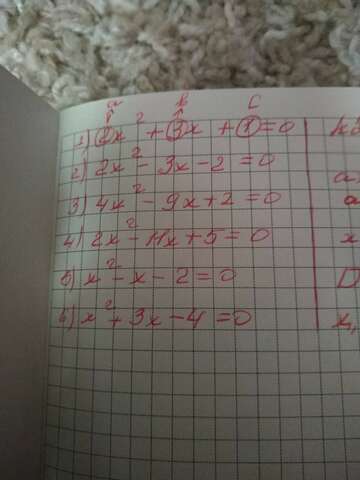 a b c
1) 2x² + 3x + 1 = 0
2) 2x² - 3x - 2 = 0
3) 4x² - 9x + 2 = 0
4) 2x² - 11x + 5 = 0
5) x² - x - 2 = 0
6) x² + 3x - 4 = 0